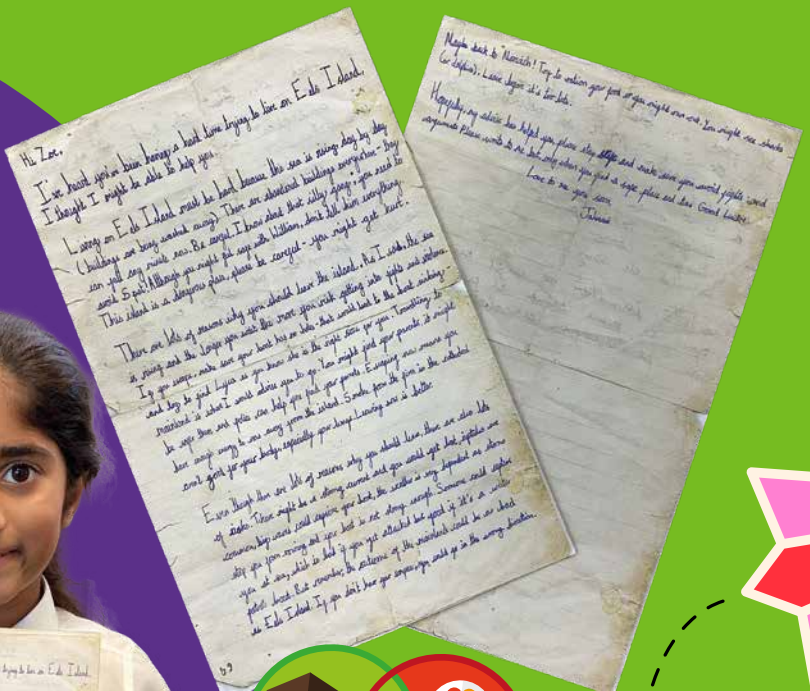 Hi Zoe,
I've heard you've been having a hard time trying to live on Eels Island,
I thought I might be able to help you.
Living on Eels Island must be hard because the sea is rising day by day
(buildings are being washed away). There are abandoned buildings everywhere - they
can fall any minute now. Be careful. I know about that silly gang - you need to
avoid Spat! Although you might feel safe with William, don't tell him everything.
This island is a dangerous place, please be careful - you might get hurt.
There are lots of reasons why you should leave the island. As I said, the sea
is rising and the longer you wait the more you risk getting into fights and
If you escape, make sure your boat has no holes - that would lead to the boat sinking -
and try to find as you know she is the right for you. Travelling to
mainland is what I would advise you to go. You might find your parents, it might
be safer there and police can help you find your parents. Escaping now means you
have enough energy to row away from the island. Smoke from the fires in the
aren't good for your body, especially your lungs. Leaving now is better.
Even though there are lots of reasons why you should leave, there are also lots
of risks. There might be a strong current and you could get lost,
common, big waves could capsize your boat, the weather is very dependent as storms
stop you from moving and your boat is not strong enough. Someone could capture
you at sea, which is bad if you get attacked but good if it's a
patrol boat. But remember, the of the mainland could be as bad
as Eels Island. If you don't hear your you could go in the wrong direction.
Maybe back to Norwich! Try to ration your food or you might run out. You might see sharks
(or dolphins). Leave before it's too late.
Hopefully, my advice has helped you, please stay safe and make sure you avoid fights and
arguments. Please write to me but only when you find a safe place and time. Good Luck!
Love to see you soon
trying to live on Eels Island,